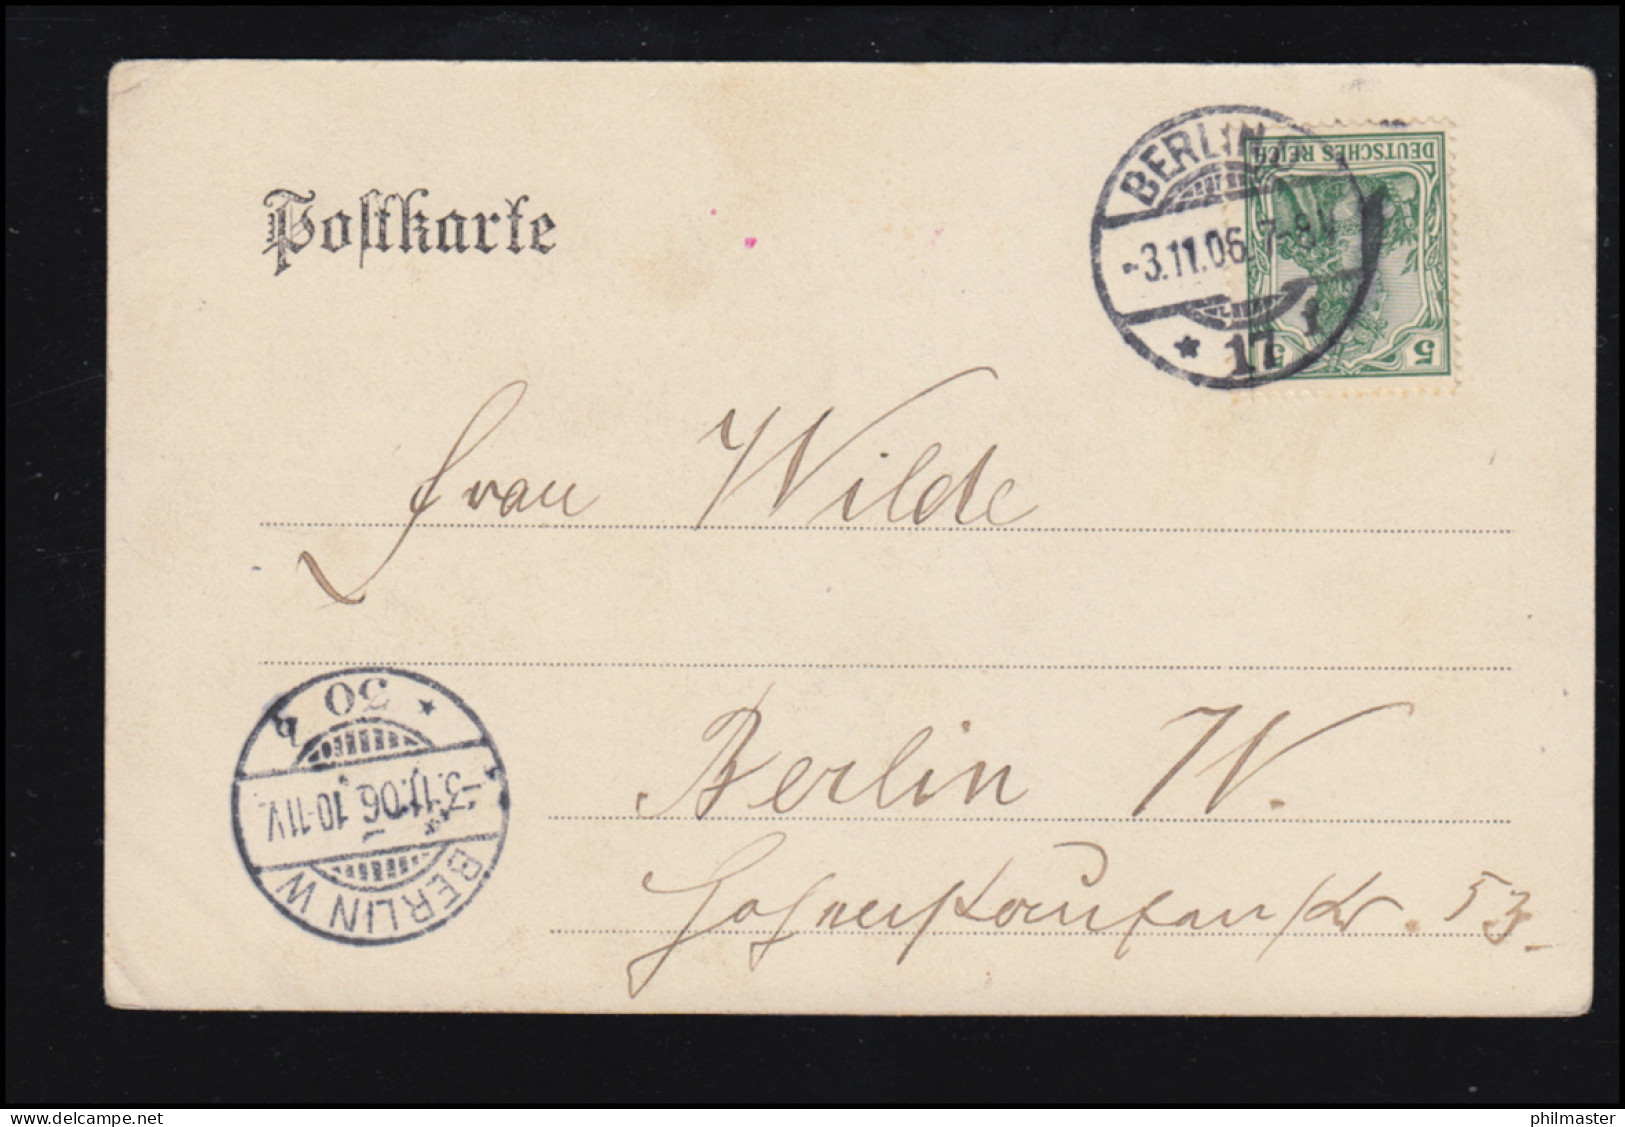 Postkarte
BERLIN
-3.11.06. 7-8V
* 17 f
DEUTSCHES REICH
5 5
Frau Wilde
Berlin W.
53.
* 30 b
-3.11.06. 10-11V.
BERLIN W
delcampe.net
philmaster